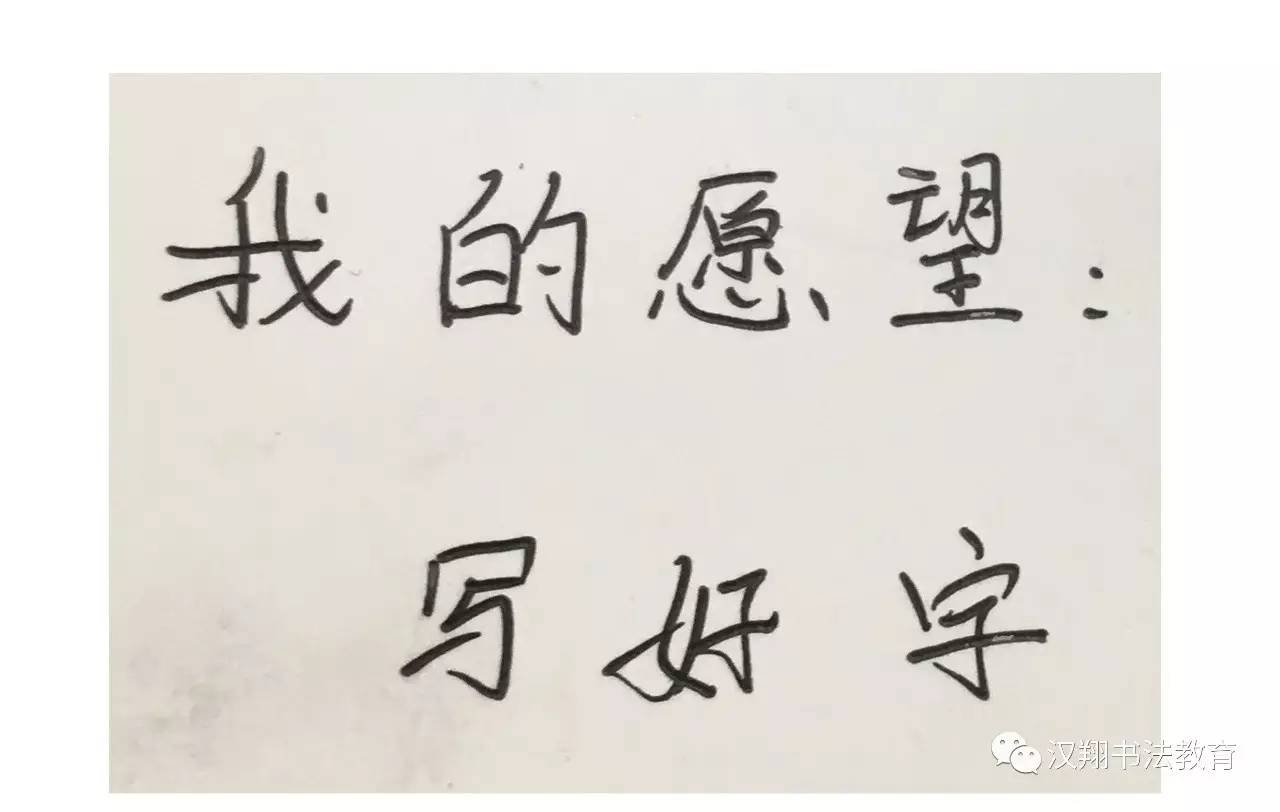 我的愿望：
写好字
汉翔书法教育